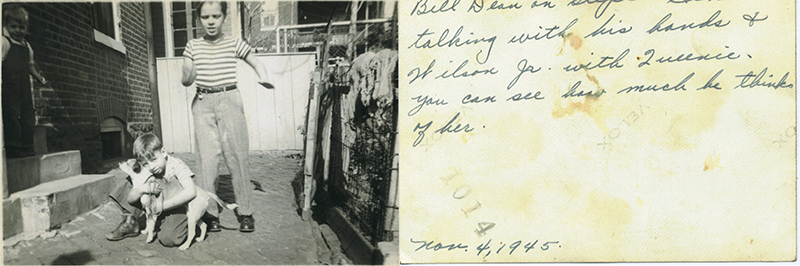 Bill Dean on
talking with his hands &
Wilson Jr. with Queenie.
you can see how much he thinks
of her.
VELOX
1014
Nov. 4, 1945.